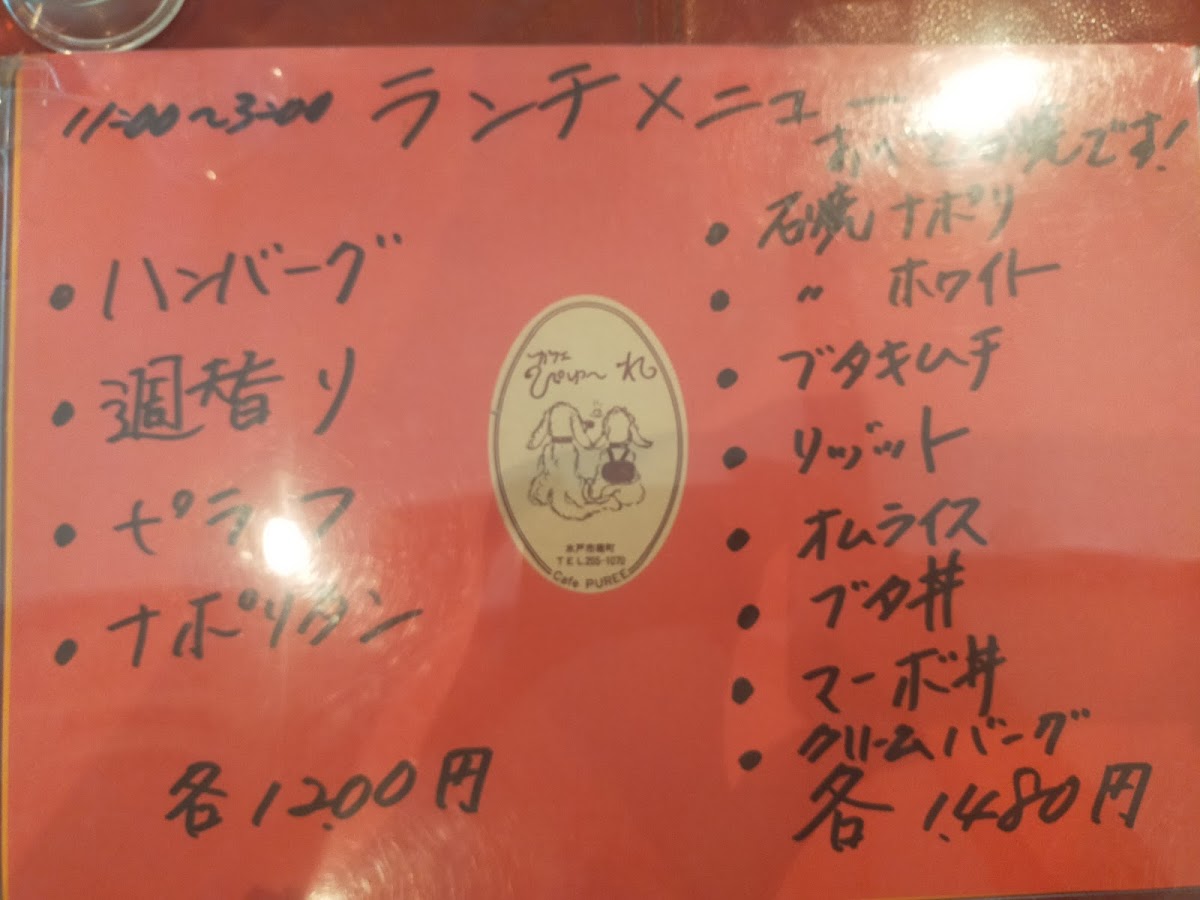 11:00〜3:00 ランチメニュー
・ハンバーグ
・週替り
・ピラフ
・ナポリタン
各1,200円
焼です!
・石焼ナポリ
・〃 ホワイト
・ブタキムチ
・リゾット
・オムライス
・ブタ丼
・マーボ丼
・クリームバーグ
各1,480円
カフェ
ぴゅ〜れ
水戸市
TEL.255-1070
Cafe PUREE